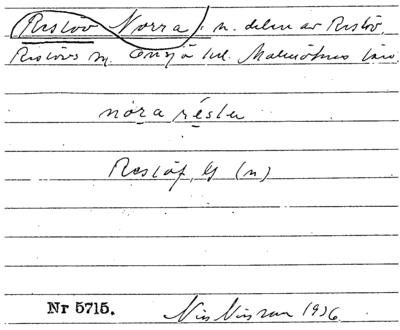 Reslöv Norra, n. delen av Reslöv,
Reslövs sn, Onsjö hd. Malmöhus län
nóra résle
Reslöf, G (n)
Nr 5715. Nils Nilsson 1936